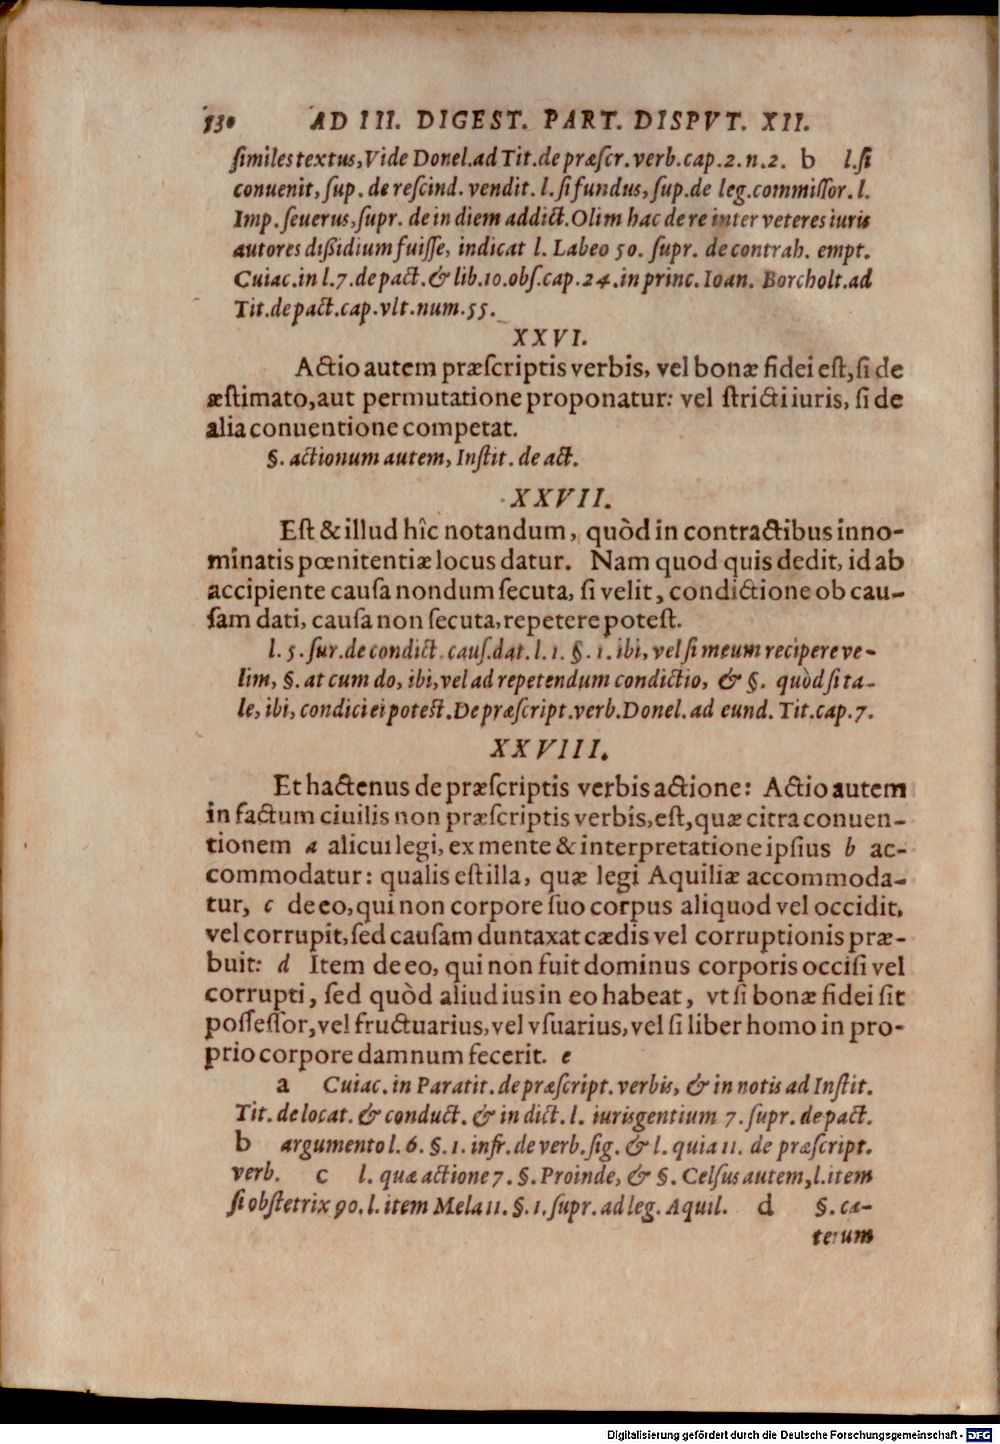 130 AD III. DIGEST. PART. DISPVT. XII.
ſimiles textus, Vide Donel. ad Tit. de præſcr. verb. cap. 2. n. 2. b l. ſi
conuenit, ſup. de reſcind. vendit. l. ſi fundus, ſup. de leg. commiſſor. l.
Imp. ſeuerus, ſupr. de in diem addict. Olim hac de re inter veteres iuris
autores dißidium fuiſſe, indicat l. Labeo 50. ſupr. de contrah. empt.
Cuiac. in l. 7. de pact. & lib. 10. obſ. cap. 24. in princ. Ioan. Borcholt. ad
Tit. de pact. cap. vlt. num. 55.
XXVI.
Actio autem præſcriptis verbis, vel bonæ fidei eſt, ſi de
æſtimato, aut permutatione proponatur: vel ſtricti iuris, ſi de
alia conuentione competat.
§. actionum autem, Inſtit. de act.
XXVII.
Eſt & illud hîc notandum, quòd in contractibus inno-
minatis pœnitentiæ locus datur. Nam quod quis dedit, id ab
accipiente cauſa nondum ſecuta, ſi velit, condictione ob cau-
ſam dati, cauſa non ſecuta, repetere poteſt.
l. 5. ſur. de condict. cauſ. dat. l. 1. §. 1. ibi, vel ſi meum recipere ve-
lim, §. at cum do, ibi, vel ad repetendum condictio, & §. quòd ſi ta-
le, ibi, condici ei poteſt. De præſcript. verb. Donel. ad eund. Tit. cap. 7.
XXVIII.
Et hactenus de præſcriptis verbis actione: Actio autem
in factum ciuilis non præſcriptis verbis, eſt, quæ citra conuen-
tionem a alicui legi, ex mente & interpretatione ipſius b ac-
commodatur: qualis eſt illa, quæ legi Aquiliæ accommoda-
tur, c de eo, qui non corpore ſuo corpus aliquod vel occidit,
vel corrupit, ſed cauſam duntaxat cædis vel corruptionis præ-
buit: d Item de eo, qui non fuit dominus corporis occiſi vel
corrupti, ſed quòd aliud ius in eo habeat, vt ſi bonæ fidei ſit
poſſeſſor, vel fructuarius, vel vſuarius, vel ſi liber homo in pro-
prio corpore damnum fecerit. e
a Cuiac. in Paratit. de præſcript. verbis, & in notis ad Inſtit.
Tit. de locat. & conduct. & in dict. l. iurisgentium 7. ſupr. de pact.
b argumento l. 6. §. 1. infr. de verb. ſig. & l. quia 11. de præſcript.
verb. c l. qua actione 7. §. Proinde, & §. Celſus autem, l. item
ſi obſtetrix 90. l. item Mela 11. §. 1. ſupr. ad leg. Aquil. d §. cæ-
terum
Digitalisierung gefördert durch die Deutsche Forschungsgemeinschaft - DFG